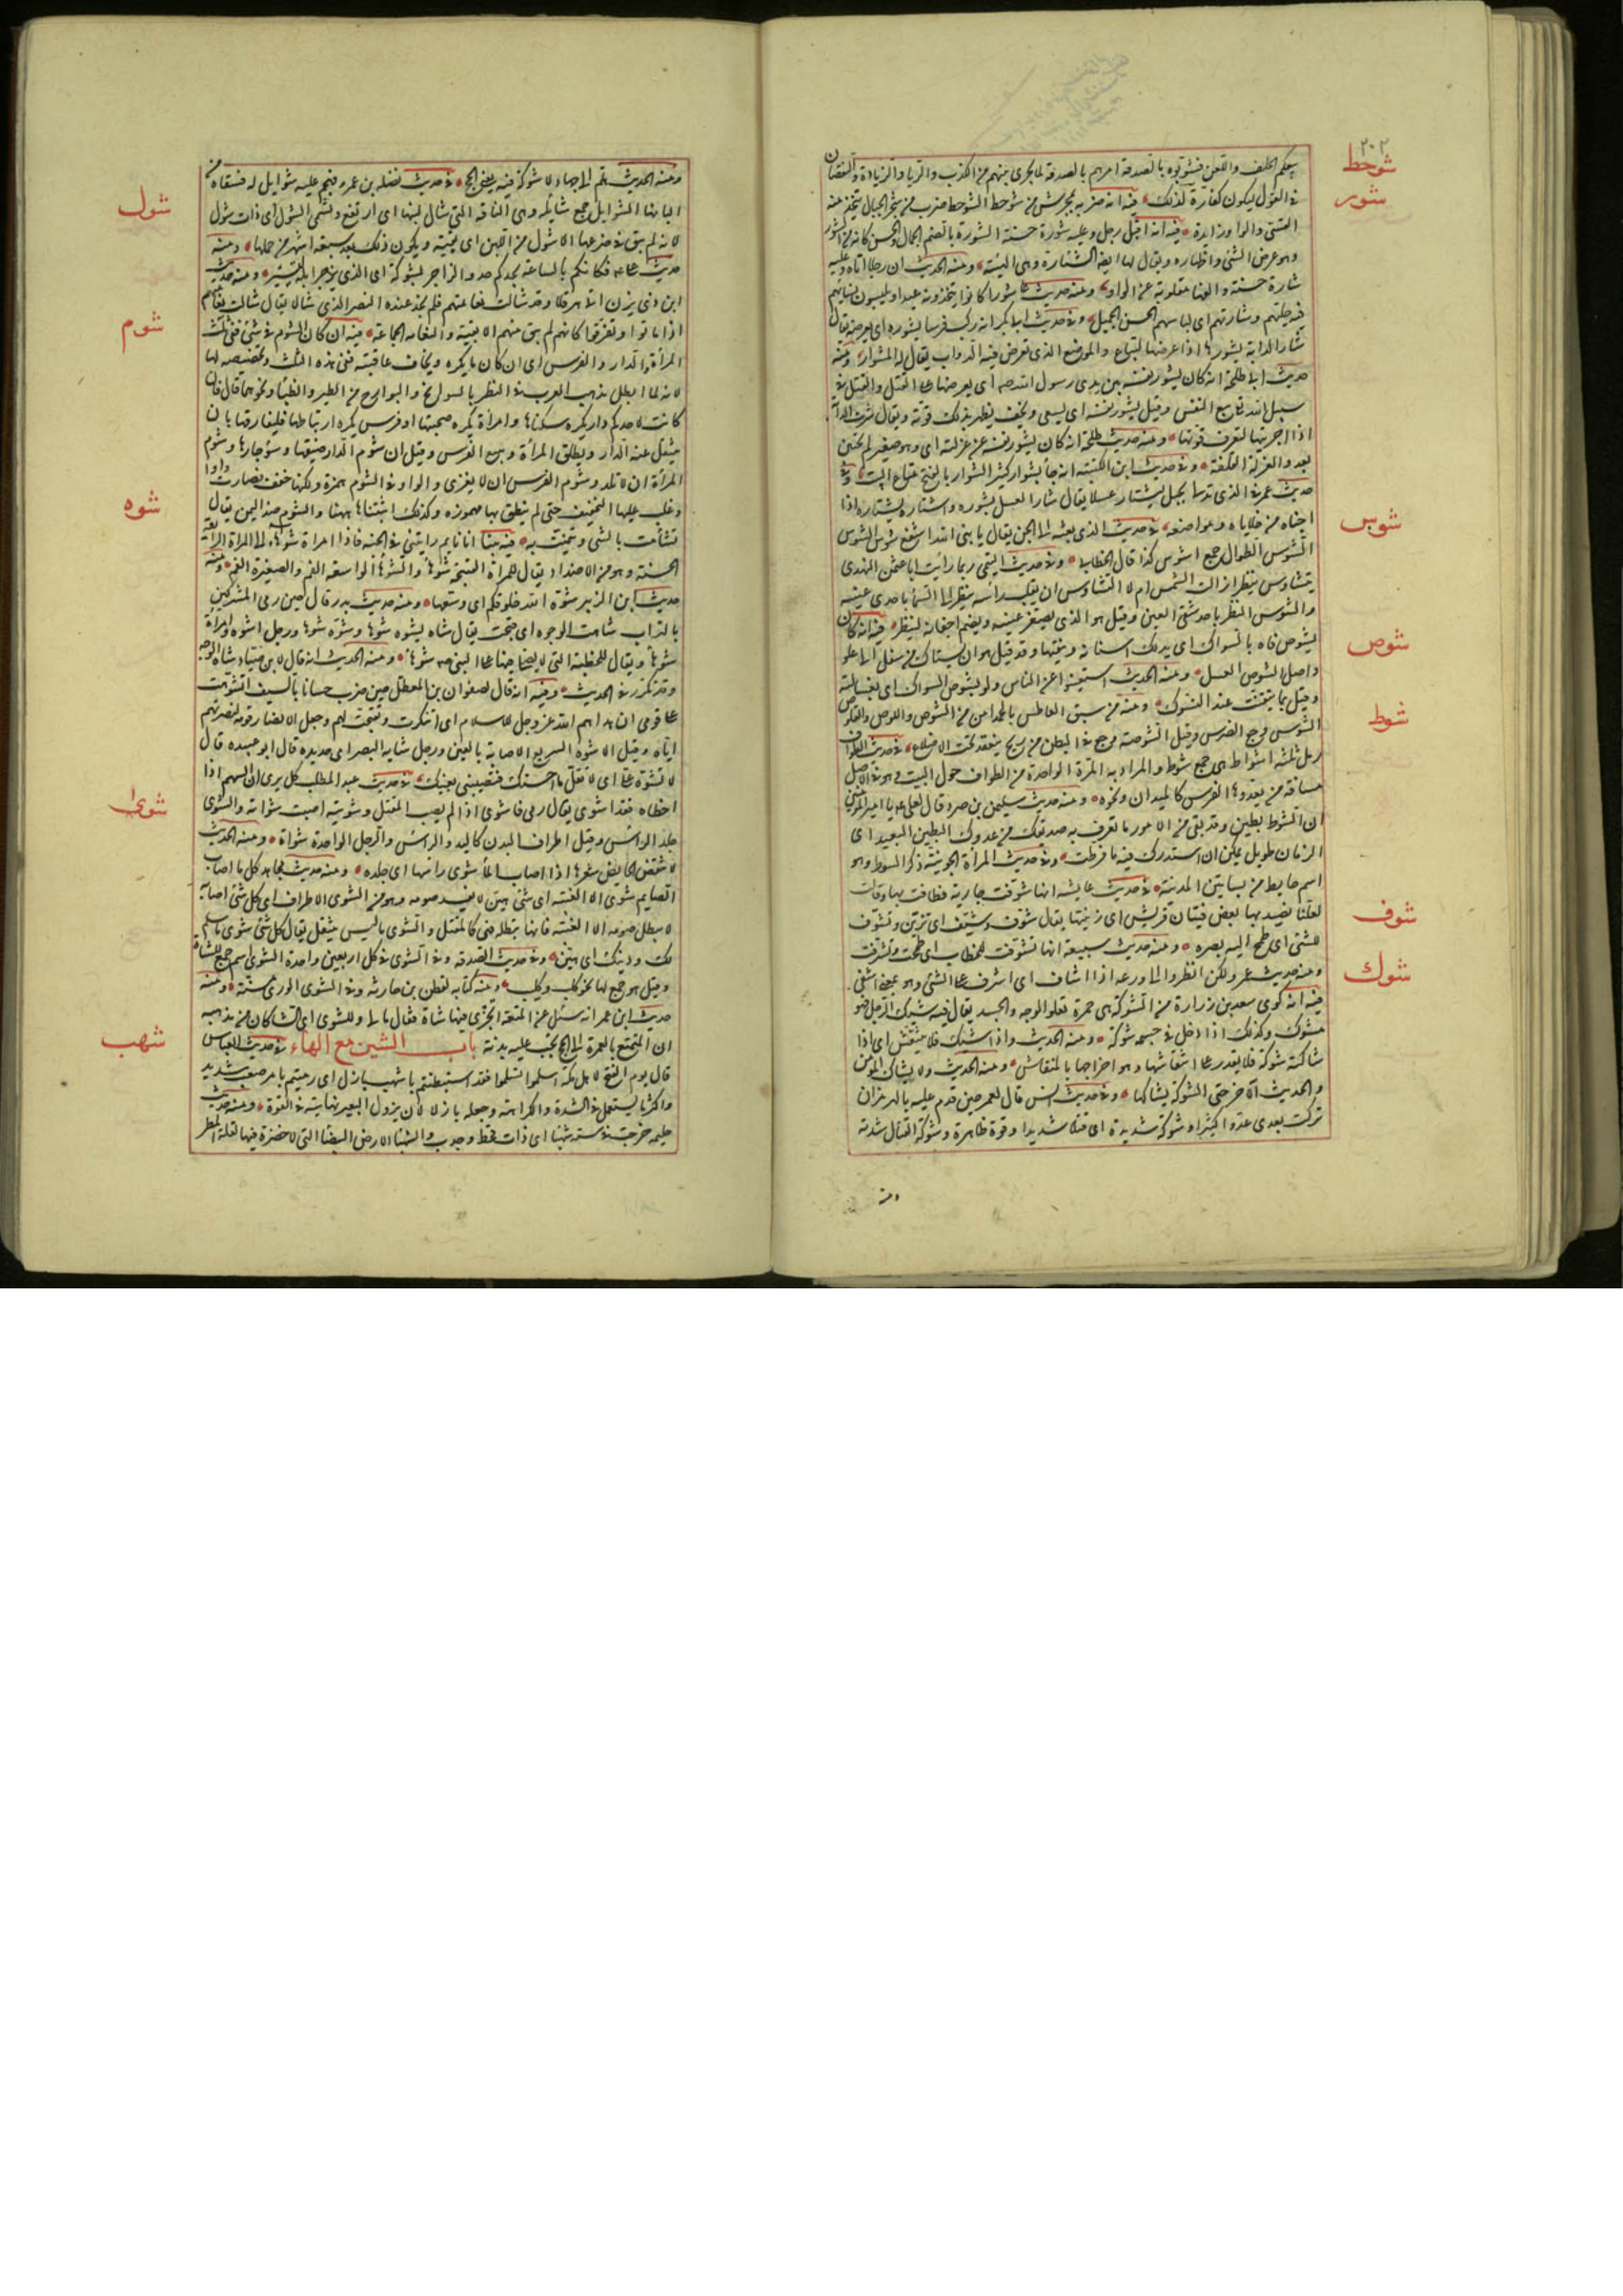 ٢٠٢
شوحط
شور
شوس
شوص
شوط
شوف
شوك
بيعكم الحلف واللغو فشوبوه بالصدقة امرهم بالصدقة لما يجرى بينهم من الكذب والربا والزيادة والنقصان
فى القول ليكون كفارة لذلك فيه انه ضربه بمخرش من شوحط الشوحط ضرب من شجر الجبال يتخذ منه
القسى والواو زايدة فيه انه اقبل رجل وعليه شورة حسنة الشورة بالضم الجمال والحسن كانه من الشور
وهو عرض الشئ واظهاره ويقال لها ايضا الشارة وهى الهيئة ومنه الحديث ان رجلا اتاه وعليه
شارة حسنة والفها مقلوبة عن الواو ومنه حديث عاشورا كانوا يتخذونه عيدا ويلبسون نساءهم
فيه حليهم وشارتهم اى لباسهم الحسن الجميل وفى حديث ابى بكر انه ركب فرسا يشوره اى يعرضه يقال
شار الدابة يشورها اذا عرضها لتباع والموضع الذى تعرض فيه الدواب يقال له المشوار ومنه
حديث ابى طلحة انه كان يشور نفسه بين يدى رسول الله صم اى يعرضها على القتل والقتل فى
سبيل الله بيع النفس وقيل يشور نفسه اى يسعى ويخف يظهر بذلك قوته ويقال شرت الدابة
اذا اجريتها لتعرف قوتها ومنه حديث طلحة انه كان يشور نفسه على غرلته اى وهو صغير لم يختن
بعد والغرلة القلفة وفى حديث ابن اللتبية انه جاء بشوار كثير الشوار بالفتح متاع البيت وفى
حديث عمر فى الذى تدلى بحبل ليشتار عسلا يقال شار العسل يشوره واشتاره يشتاره اذا
اجتناه من خلاياه ومواضعه فى حديث الذى بعثه الى الجن فقال يا نبى الله اسفع شوس الشوس
الشوس الطوال جمع اشوس كذا قال الخطابى وفى حديث التيمى ربما رايت ابا عثمن النهدى
يتشاوس ينظر ازالت الشمس ام لا التشاوس ان يقلب رأسه ينظر الى السماء باحدى عينيه
والشوس النظر باحد شقى العين وقيل هو الذى يصغر عينيه ويضم اجفانه لينظر فيه انه كان
يشوص فاه بالسواك اى يدلك اسنانه وينقيها وقد قيل هو ان يستاك من سفل الى علو
واصل الشوص الغسل ومنه الحديث استغنوا عن الناس ولو بشوص السواك اى بغسالته
وقيل بما يتفتت عند التسوك ومنه من سبق العاطس بالحمد امن من الشوص واللوص والعلوص
الشوص وجع الضرس وقيل الشوصة وجع فى البطن من ريح ينعقد تحت الاضلاع فى حديث الطواف
رمل ثلثة اشواط هى جمع شوط والمراد به المرة الواحدة من الطواف حول البيت وهو فى الاصل
مسافة من يعدوها الفرس كالميدان ونحوه ومنه حديث سليمن بن صرد قال لعلى يا امير المؤمنين
ان الشوط بطين وقد بقى من الامور ما تعرف به صديقك من عدوك البطين البعيد اى
الزمان طويل يمكن ان استدرك فيه ما فرطت وفى حديث المرأة الجونية ذكر الشوط وهو
اسم حايط من بساتين المدينة فى حديث عايشة انها شوفت جارية فطافت بها وقالت
لعلنا نصيد بها بعض فتيان قريش اى زينتها يقال شوف وشيف اى تزين وتشوف
للشئ اى طمح اليه بصره ومنه حديث سبيعة انها تشوفت للخطاب اى طمحت وتشرفت
ومنه حديث عمر ولكن انظروا الى ورعه اذا اشاف اى اشرف على الشئ وهو بمعنى اشفى
فيه انه كوى سعد بن زرارة من الشوكة هى حمرة تعلو الوجه والجسد يقال منه شيك الرجل فهو
مشوك وكذلك اذا دخل فى جسمه شوكة ومنه الحديث واذا شيك فلا انتقش اى اذا
شاكته شوكة فلا يقدر على انتقاشها وهو اخراجها بالمنقاش ومنه الحديث ولا يشاك المؤمن
والحديث الآخر حتى الشوكة يشاكها وفى حديث انس قال لعمر حين قدم عليه بالهرمزان
تركت بعدى عدوا كثيرا وشوكة شديدة اى قتالا شديدا وقوة ظاهرة وشوكة القتال شدته
ومنه
شول
شوم
شوه
شوى
شهب
ومنه الحديث هلم الى جهاد لا شوكة فيه يعنى الحج فى حديث نضلة بن عمرو فهجم عليه شوايل له فسقاه من
البانها الشوايل جمع شايلة وهى الناقة التى شال لبنها اى ارتفع وتسمى الشول اى ذات شول
لانه لم يبق فى ضرعها الا شول من اللبن اى بقية ويكون ذلك بعد سبعة اشهر من حملها ومنه
حديث على فكانكم بالساعة تحدوكم حدو الزاجر بشوله اى الذى يزجر ابله لتسير ومنه حديث
ابن ذى يزن اتى هرقلا وقد شالت نعامتهم فلم يجد عنده النصر الذى سالا يقال شالت نعامتهم
اذا ماتوا وتفرقوا كانهم لم يبق منهم الا بقية والنعامة الجماعة فيه ان كان الشوم فى شئ ففى ثلث
المرأة والدار والفرس اى ان كان ما يكره ويخاف عاقبته ففى هذه الثلث وتخصيصه لها
لانه لما ابطل مذهب العرب فى التطير بالسوانح والبوارح من الطير والظبا ونحوهما قال فان
كانت لاحدكم دار يكره سكناها وامرأة يكره صحبتها او فرس يكره ارتباطها فليفارقها بان
ينتقل عن الدار ويطلق المرأة ويبيع الفرس وقيل ان شوم الدار ضيقها وسوء جارها وشوم
المرأة ان لا تلد وشوم الفرس ان لا يغزى والواو فى الشوم همزة ولكنها خففت فصارت واوا
وغلب عليها التخفيف حتى لم ينطق بها مهموزة وكذلك اثبتناها ههنا والشوم ضد اليمن يقال
تشأمت بالشئ وتيمنت به فيه بينا انا نايم رايتنى فى الجنة فاذا امراة شوهاء الى المراة الرايعة
الحسنة وهو من الاضداد يقال للمراة القبيحة شوهاء والشوهاء الواسعة الفم والصغيرة الفم ومنه
حديث ابن الزبير شوه الله حلوقكم اى وسعها ومنه حديث بدر قال حين رمى المشركين
بالتراب شاهت الوجوه اى قبحت يقال شاه يشوه شوها وشوه شوها ورجل اشوه وامرأة
شوهاء ويقال للخطبة التى لا يصلى فيها على النبى صم شوهاء ومنه الحديث انه قال لابن صياد شاه الوجه
وقد تكرر فى الحديث وفيه انه قال لصفوان بن المعطل حين ضرب حسانا بالسيف اتشوهت
على قومى ان هداهم الله عز وجل للاسلام اى اتنكرت وتقبحت لهم وجعل الانصار قومه لنصرتهم
اياه وقيل الاشوه السريع الاصابة بالعين ورجل شايه البصر اى حديده قال ابو عبيده قال
لا تشوه على اى لا تقل ما احسنك فتصيبنى بعينك فى حديث عبد المطلب كل يرى ان السهم اذا
اخطاه فقد اشوى يقال رمى فاشوى اذا لم يصب المقتل وشويته اصبت شواته والشوى
جلد الراس وقيل اطراف البدن كاليد والراس والرجل الواحدة شواة ومنه الحديث
لا تنقض الحايض شعرها اذا اصاب الماء شوى راسها اى جلده ومنه حديث مجاهد كل ما اصاب
الصايم شوى الا الغيبة اى شئ هين لا يفسد صومه وهو من الشوى الاطراف اى كل شئ اصابه
لا يبطل صومه الا الغيبة فانها تبطله فهى كالمقتل والشوى ما ليس بمقتل يقال كل شئ شوى ما سلم
لك دينك اى هين وفى حديث الصدقة وفى الشوى فى كل اربعين واحدة الشوى اسم جمع للشاة
وقيل هو جمع لها نحو كلب وكليب ومنه كتابه لقطن بن حارثة وفى الشوى الورى مسنة ومنه
حديث ابن عمر انه سئل عن المتعة اتجزى فيها شاة فقال مالى وللشوى اى الشا كان من مذهبه
ان المتمتع بالعمرة الى الحج تجب عليه بدنة باب الشين مع الهاء فى حديث العباس
قال يوم الفتح لاهل مكة اسلموا تسلموا فقد استبطنتم باشهب بازل اى رميتم بامر صعب شديد
واكثر ما يستعمل فى الشدة والكراهة وجعله بازلا لان بزول البعير نهايته فى القوة ومنه حديث
حليمة خرجت فى سنة شهبا اى ذات قحط وجدب والشهبا الارض البيضا التى لا خضرة فيها لقلة المطر